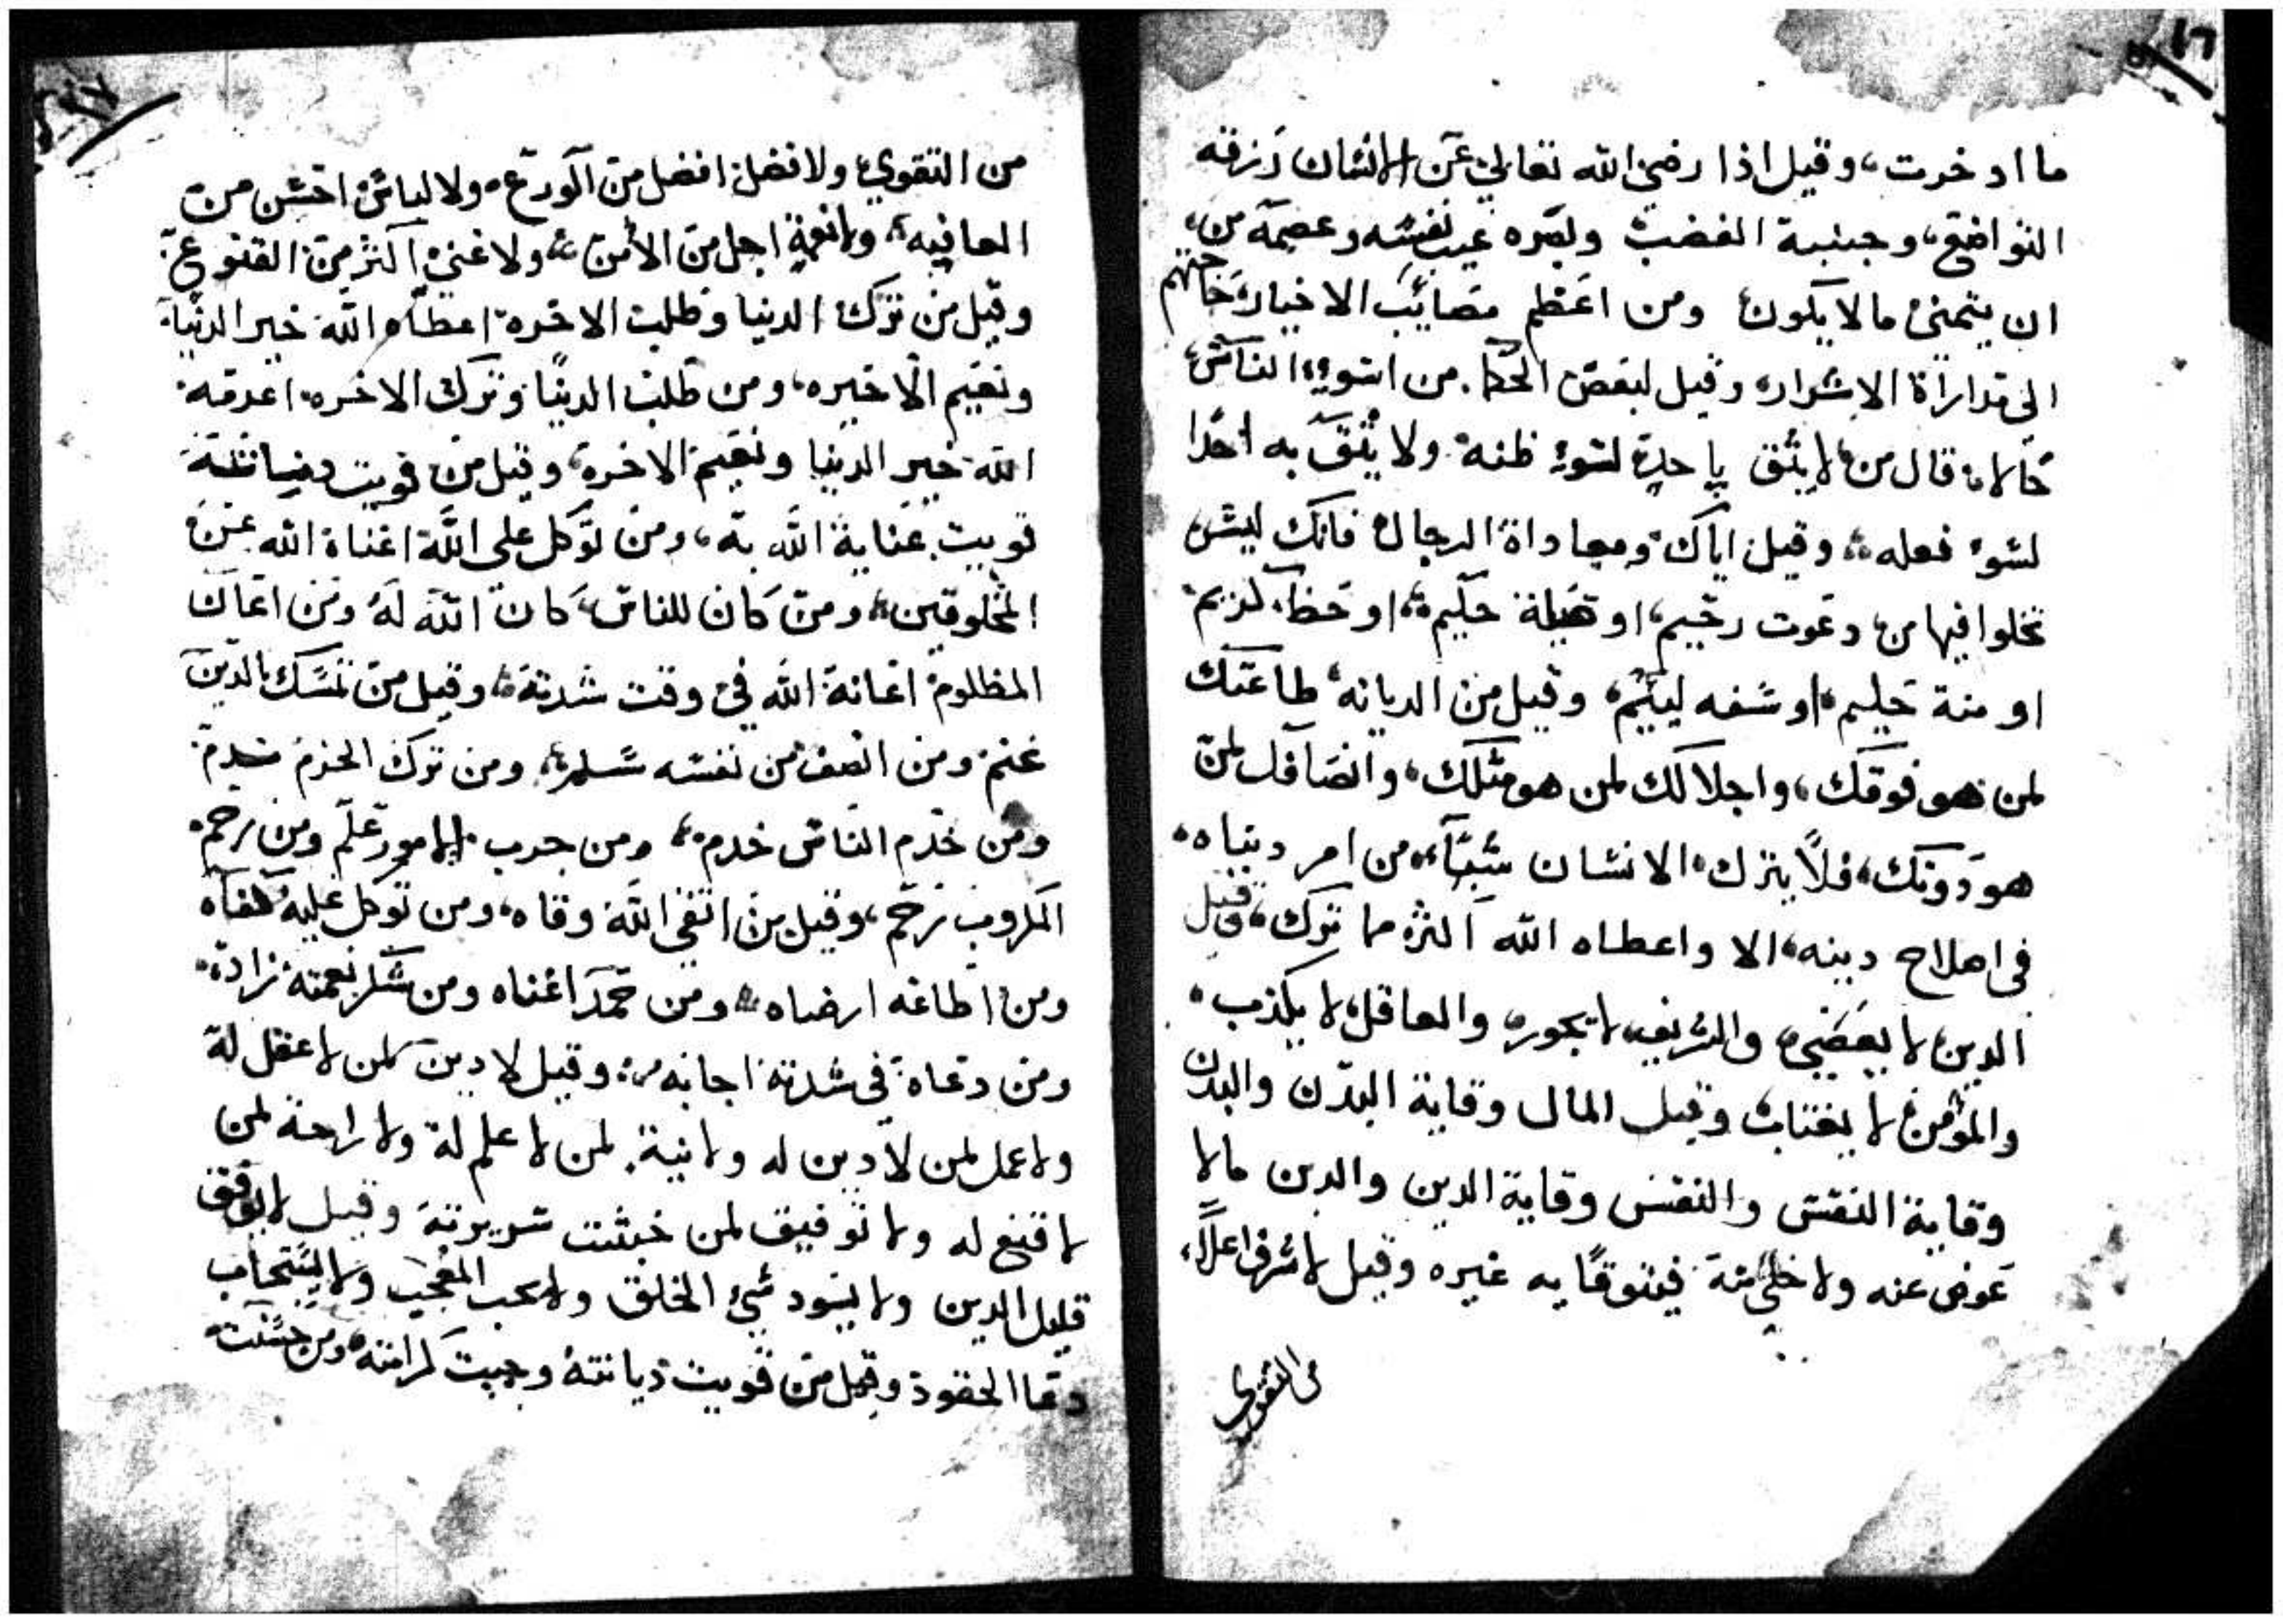 ما ادخرت، وقيل اذا رضي الله تعالى عن الانسان رزقه
التواضع، وجنبه الغضب وبصره عيب نفسه وعصمه من
ان يتمنى مالا يكون ومن اعظم مصايب الاخيار حاجتهم
الى مداراة الاشرار وقيل لبعض الحكما. من اسوء الناس
حالا، قال من لا يثق باحد لسوء ظنه ولا يثق به احدا
لسوء فعله، وقيل اياك ومعاداة الرجال فانك ليس
تخلوا فيها من دعوت رحيم، او حيلة حكيم، او حظ كريم
او منة حليم، او سفه لييم، وقيل من الديانه طاعتك
لمن هو فوقك، واجلالك لمن هو مثلك، وانصافك لمن
هو دونك، فلا يترك الانسان شيئا، من امر دنياه،
في اصلاح دينه، الا واعطاه الله اكثر مما ترك، وقيل
الدين لا يعصي والشريف لا يجور والعاقل لا يكذب،
والمؤمن لا يغتاب وقيل المال وقاية البدن والبدن
وقاية النفس والنفس وقاية الدين والدين مالا
عوض عنه ولا منه فيتوقا به غيره وقيل لا شرف اعلا،
من التقوى
من التقوي ولا فضل افضل من الورع، ولا لباس احسن من
العافيه، ولا نعمة اجل من الأمن، ولا غنى اكثر من القنوع
وقيل من ترك الدنيا وطلب الاخره اعطاه الله خير الدنيا
ونعيم الاخيره، ومن طلب الدنيا وترك الاخره اعدمه
الله خير الدنيا ونعيم الاخرة، وقيل من قويت ديانته
قويت عناية الله به، ومن توكل على الله اغناة الله عن
المخلوقين، ومن كان للناس كان الله له ومن اعان
المظلوم اعانة الله في وقت شدته، وقيل من تمسك بالدين
غنم ومن انصف من نفسه سلم، ومن ترك الحزم ندم
ومن خدم الناس خدم، ومن جرب الامور علم ومن رحم
المكروب رحم، وقيل من اتقى الله وقاه، ومن توكل عليه كفاه
ومن اطاعه ارضاه ومن حمد اغناه ومن شكر نعمته زاده
ومن دعاه في شدته اجابه وقيل لا دين لمن لا عقل له
ولا عمل لمن لا دين له ولا نية. لمن لا علم له ولا راحة لمن
لا قنع له ولا توفيق لمن خبثت سريرته وقيل لا يوفق
قليل الدين ولا يسود سيئ الخلق ولا يحب المعجب ولا يستجاب
دعا الحقود وقيل من قويت ديانته وجبت كرامته ومن حسنت